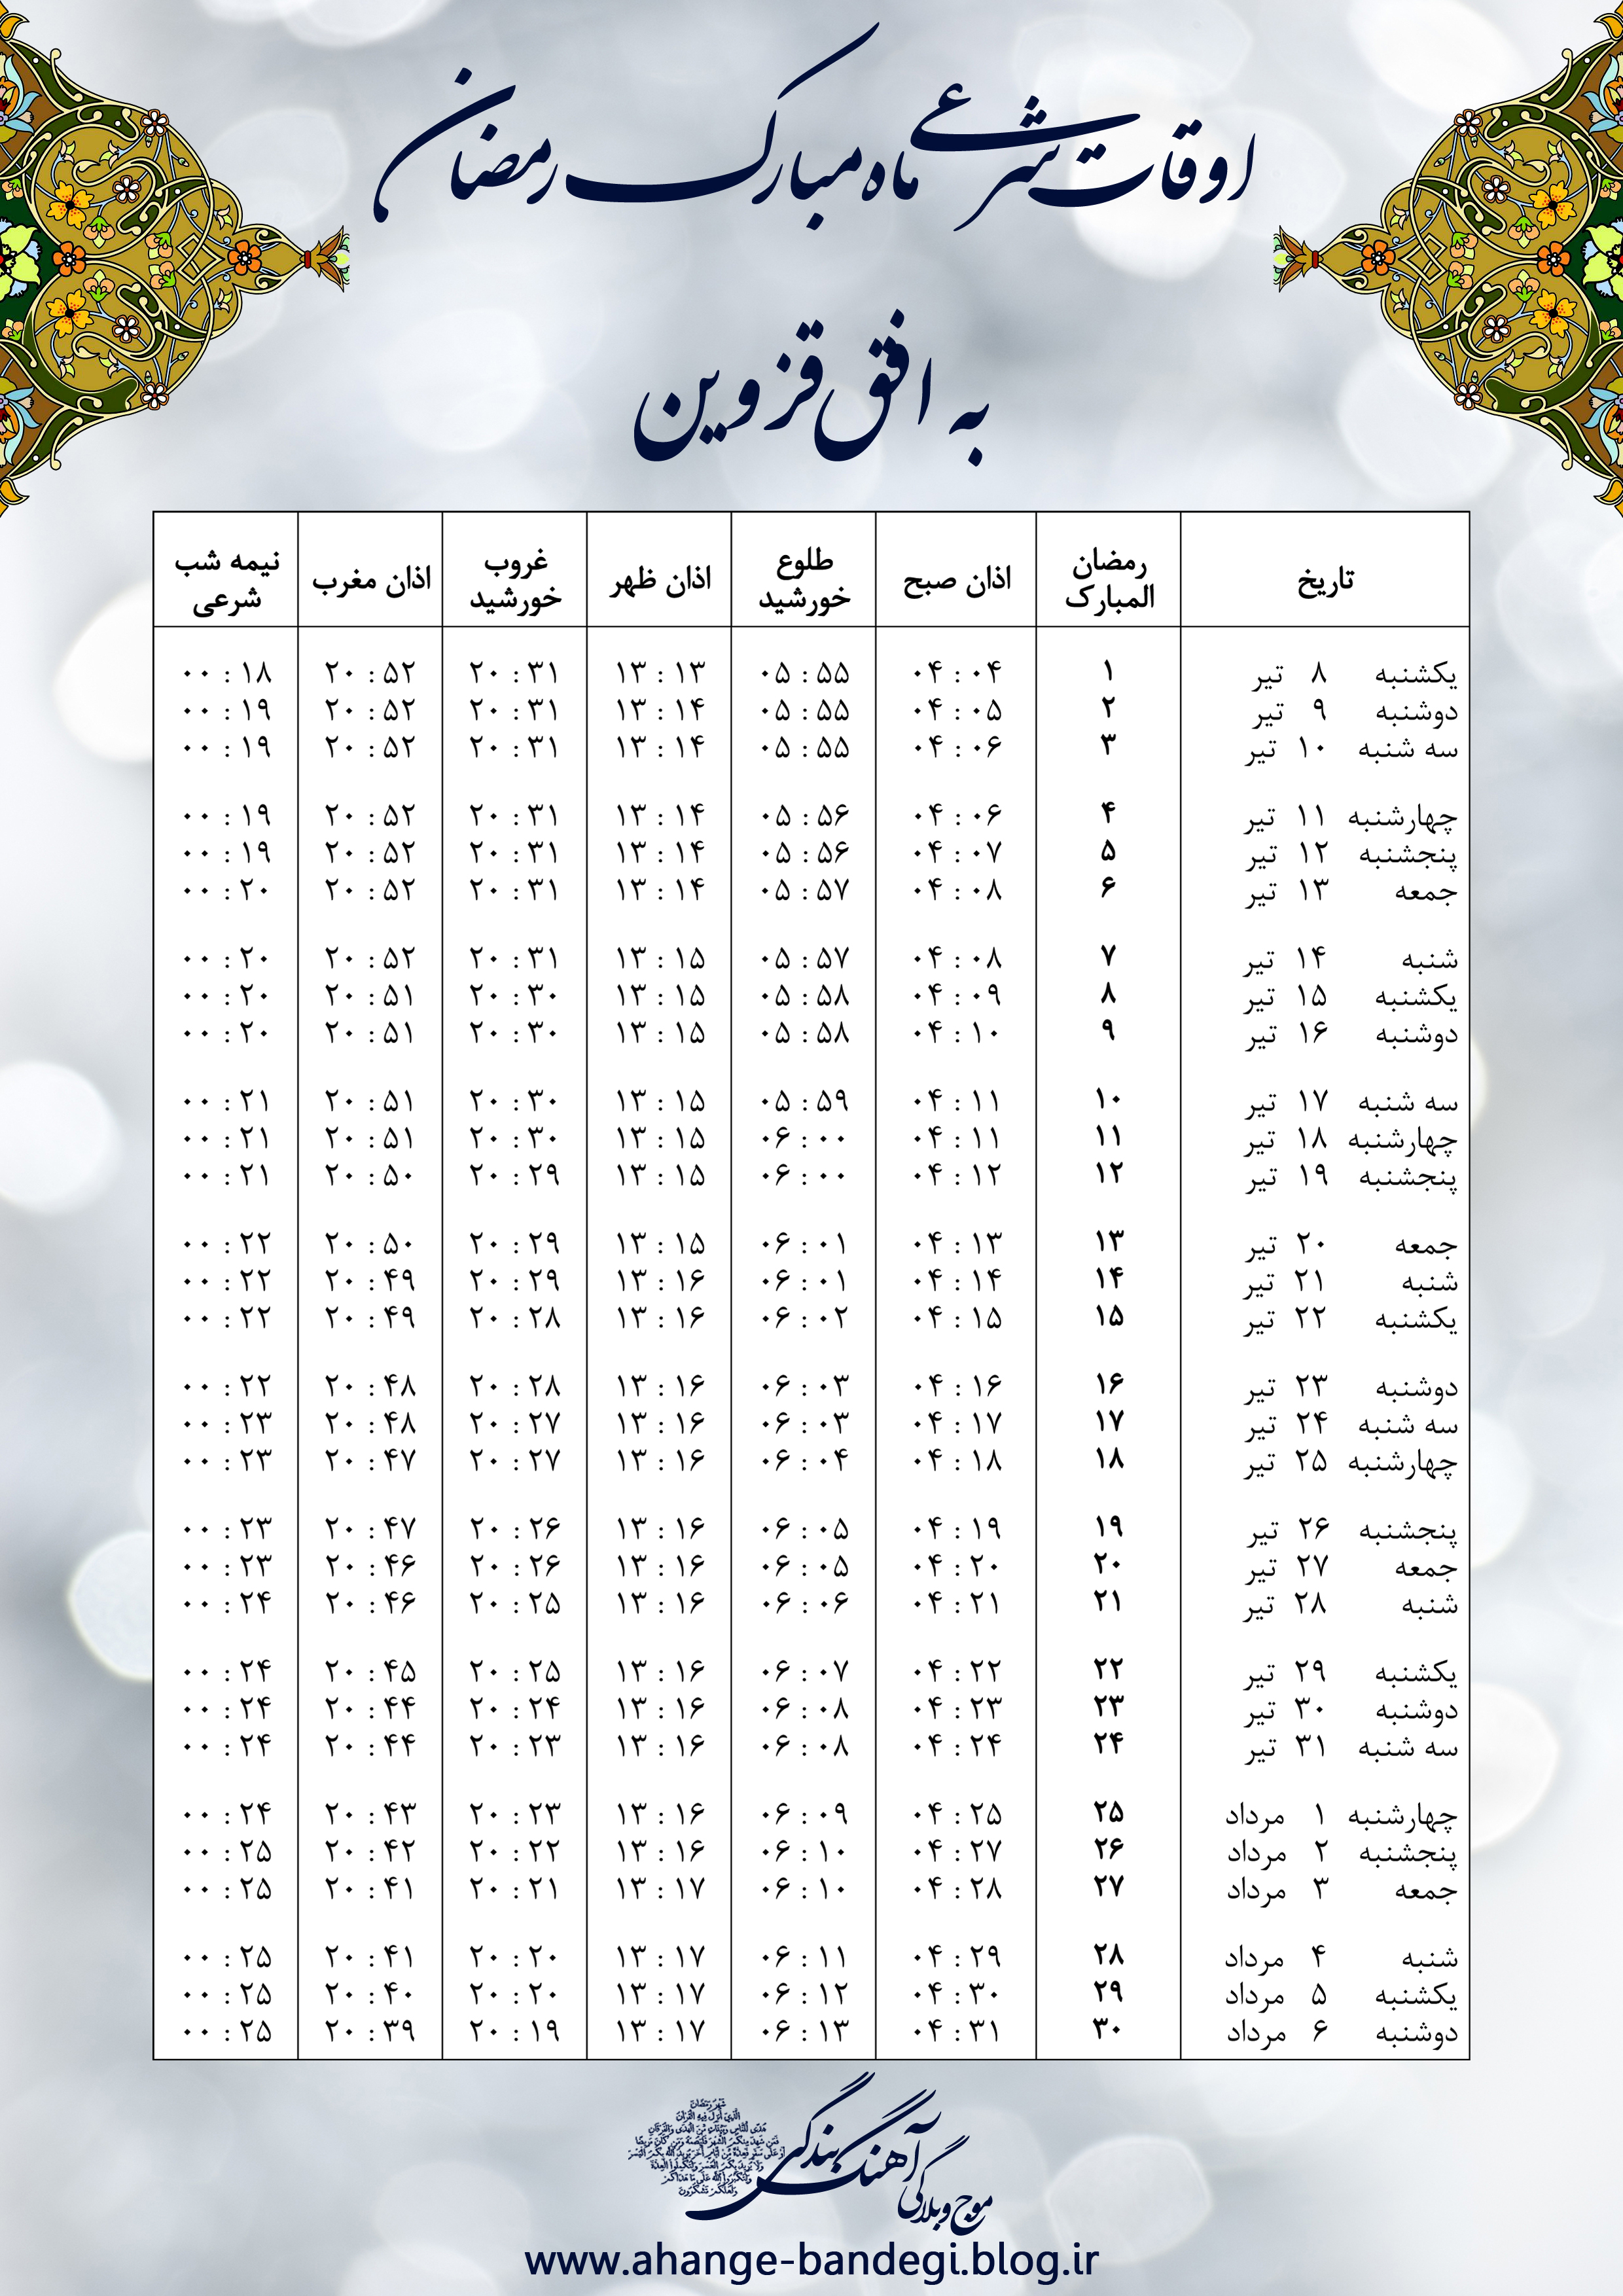 اوقات شرعی ماه مبارک رمضان
به افق قزوین
تاریخ رمضان المبارک اذان صبح طلوع خورشید اذان ظهر غروب خورشید اذان مغرب نیمه شب شرعی
یکشنبه ۸ تیر ۱ ۰۴:۰۴ ۰۵:۵۵ ۱۳:۱۳ ۲۰:۳۱ ۲۰:۵۲ ۰۰:۱۸
دوشنبه ۹ تیر ۲ ۰۴:۰۵ ۰۵:۵۵ ۱۳:۱۴ ۲۰:۳۱ ۲۰:۵۲ ۰۰:۱۹
سه شنبه ۱۰ تیر ۳ ۰۴:۰۶ ۰۵:۵۵ ۱۳:۱۴ ۲۰:۳۱ ۲۰:۵۲ ۰۰:۱۹
چهارشنبه ۱۱ تیر ۴ ۰۴:۰۶ ۰۵:۵۶ ۱۳:۱۴ ۲۰:۳۱ ۲۰:۵۲ ۰۰:۱۹
پنجشنبه ۱۲ تیر ۵ ۰۴:۰۷ ۰۵:۵۶ ۱۳:۱۴ ۲۰:۳۱ ۲۰:۵۲ ۰۰:۱۹
جمعه ۱۳ تیر ۶ ۰۴:۰۸ ۰۵:۵۷ ۱۳:۱۴ ۲۰:۳۱ ۲۰:۵۲ ۰۰:۲۰
شنبه ۱۴ تیر ۷ ۰۴:۰۸ ۰۵:۵۷ ۱۳:۱۵ ۲۰:۳۱ ۲۰:۵۲ ۰۰:۲۰
یکشنبه ۱۵ تیر ۸ ۰۴:۰۹ ۰۵:۵۸ ۱۳:۱۵ ۲۰:۳۰ ۲۰:۵۱ ۰۰:۲۰
دوشنبه ۱۶ تیر ۹ ۰۴:۱۰ ۰۵:۵۸ ۱۳:۱۵ ۲۰:۳۰ ۲۰:۵۱ ۰۰:۲۰
سه شنبه ۱۷ تیر ۱۰ ۰۴:۱۱ ۰۵:۵۹ ۱۳:۱۵ ۲۰:۳۰ ۲۰:۵۱ ۰۰:۲۱
چهارشنبه ۱۸ تیر ۱۱ ۰۴:۱۱ ۰۶:۰۰ ۱۳:۱۵ ۲۰:۳۰ ۲۰:۵۱ ۰۰:۲۱
پنجشنبه ۱۹ تیر ۱۲ ۰۴:۱۲ ۰۶:۰۰ ۱۳:۱۵ ۲۰:۲۹ ۲۰:۵۰ ۰۰:۲۱
جمعه ۲۰ تیر ۱۳ ۰۴:۱۳ ۰۶:۰۱ ۱۳:۱۵ ۲۰:۲۹ ۲۰:۵۰ ۰۰:۲۲
شنبه ۲۱ تیر ۱۴ ۰۴:۱۴ ۰۶:۰۱ ۱۳:۱۶ ۲۰:۲۹ ۲۰:۴۹ ۰۰:۲۲
یکشنبه ۲۲ تیر ۱۵ ۰۴:۱۵ ۰۶:۰۲ ۱۳:۱۶ ۲۰:۲۸ ۲۰:۴۹ ۰۰:۲۲
دوشنبه ۲۳ تیر ۱۶ ۰۴:۱۶ ۰۶:۰۳ ۱۳:۱۶ ۲۰:۲۸ ۲۰:۴۸ ۰۰:۲۲
سه شنبه ۲۴ تیر ۱۷ ۰۴:۱۷ ۰۶:۰۳ ۱۳:۱۶ ۲۰:۲۷ ۲۰:۴۸ ۰۰:۲۳
چهارشنبه ۲۵ تیر ۱۸ ۰۴:۱۸ ۰۶:۰۴ ۱۳:۱۶ ۲۰:۲۷ ۲۰:۴۷ ۰۰:۲۳
پنجشنبه ۲۶ تیر ۱۹ ۰۴:۱۹ ۰۶:۰۵ ۱۳:۱۶ ۲۰:۲۶ ۲۰:۴۷ ۰۰:۲۳
جمعه ۲۷ تیر ۲۰ ۰۴:۲۰ ۰۶:۰۵ ۱۳:۱۶ ۲۰:۲۶ ۲۰:۴۶ ۰۰:۲۳
شنبه ۲۸ تیر ۲۱ ۰۴:۲۱ ۰۶:۰۶ ۱۳:۱۶ ۲۰:۲۵ ۲۰:۴۶ ۰۰:۲۴
یکشنبه ۲۹ تیر ۲۲ ۰۴:۲۲ ۰۶:۰۷ ۱۳:۱۶ ۲۰:۲۵ ۲۰:۴۵ ۰۰:۲۴
دوشنبه ۳۰ تیر ۲۳ ۰۴:۲۳ ۰۶:۰۸ ۱۳:۱۶ ۲۰:۲۴ ۲۰:۴۴ ۰۰:۲۴
سه شنبه ۳۱ تیر ۲۴ ۰۴:۲۴ ۰۶:۰۸ ۱۳:۱۶ ۲۰:۲۳ ۲۰:۴۴ ۰۰:۲۴
چهارشنبه ۱ مرداد ۲۵ ۰۴:۲۵ ۰۶:۰۹ ۱۳:۱۶ ۲۰:۲۳ ۲۰:۴۳ ۰۰:۲۴
پنجشنبه ۲ مرداد ۲۶ ۰۴:۲۷ ۰۶:۱۰ ۱۳:۱۶ ۲۰:۲۲ ۲۰:۴۲ ۰۰:۲۵
جمعه ۳ مرداد ۲۷ ۰۴:۲۸ ۰۶:۱۰ ۱۳:۱۷ ۲۰:۲۱ ۲۰:۴۱ ۰۰:۲۵
شنبه ۴ مرداد ۲۸ ۰۴:۲۹ ۰۶:۱۱ ۱۳:۱۷ ۲۰:۲۰ ۲۰:۴۱ ۰۰:۲۵
یکشنبه ۵ مرداد ۲۹ ۰۴:۳۰ ۰۶:۱۲ ۱۳:۱۷ ۲۰:۲۰ ۲۰:۴۰ ۰۰:۲۵
دوشنبه ۶ مرداد ۳۰ ۰۴:۳۱ ۰۶:۱۳ ۱۳:۱۷ ۲۰:۱۹ ۲۰:۳۹ ۰۰:۲۵
موج وبلاگی آهنگ بندگی
www.ahange-bandegi.blog.ir